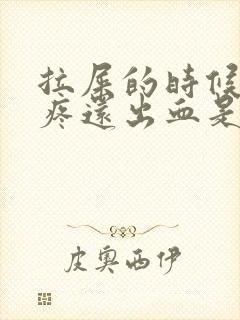 拉屎的时候
疼还出血是
皮奥西伊